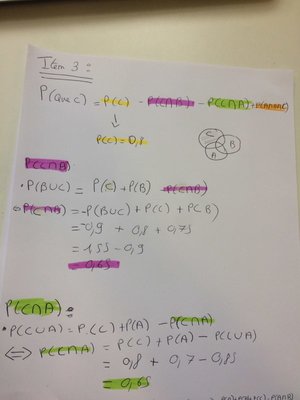 Item 3 :
P(Que C) = P(C) - P(C∩B) - P(C∩A) + P(A∩B∩C)
↓
P(C) = 0,8
C
B
A
P(C∩B)
• P(BUC) = P(C) + P(B) - P(C∩B)
⇔ P(C∩B) = -P(BUC) + P(C) + P(B)
= -0,9 + 0,8 + 0,75
= 1,55 - 0,9
= 0,65
P(C∩A) :
• P(CUA) = P(C) + P(A) - P(C∩A)
⇔ P(C∩A) = P(C) + P(A) - P(CUA)
= 0,8 + 0,7 - 0,85
= 0,65